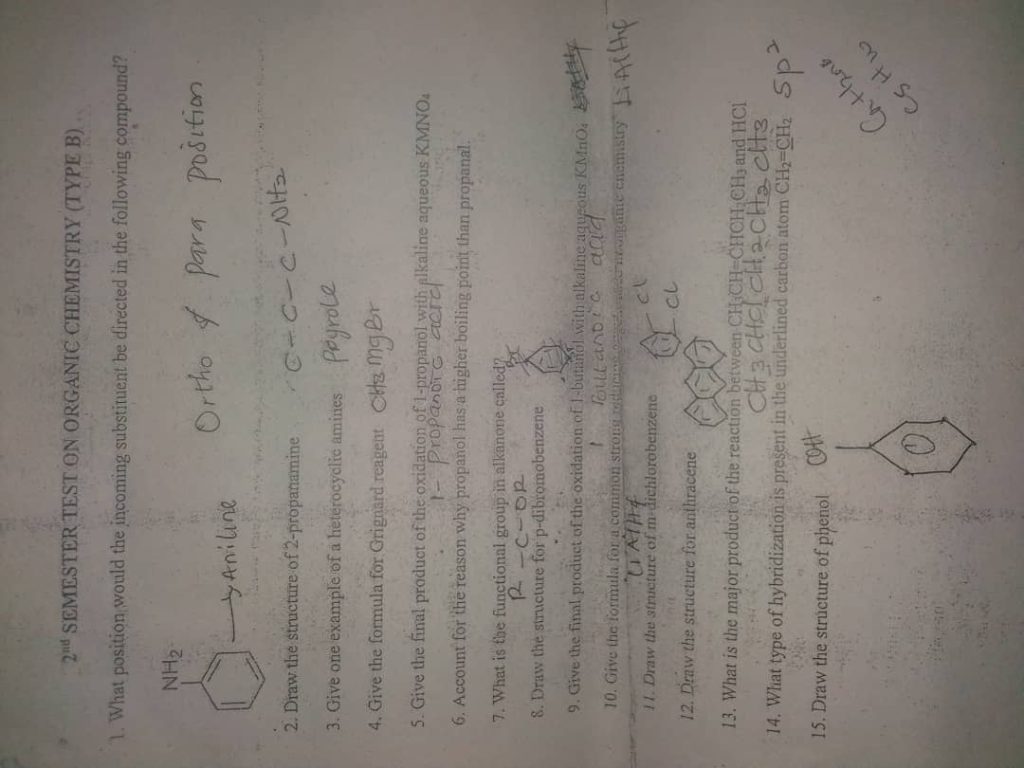 2nd SEMESTER TEST ON ORGANIC CHEMISTRY (TYPE B)
1. What position would the incoming substituent be directed in the following compound?
NH2
Ortho & para position
Aniline
2. Draw the structure of 2-propanamine C-C-C-NH2
3. Give one example of a heterocyclic amines Pyrole
4. Give the formula for Grignard reagent CH3MgBr
5. Give the final product of the oxidation of 1-propanol with alkaline aqueous KMNO4
1- Propanoic acid
6. Account for the reason why propanol has a higher boiling point than propanal.
7. What is the functional group in alkanone called?
R-C-OR
8. Draw the structure for p-dibromobenzene Br
9. Give the final product of the oxidation of 1-butanol with alkaline aqueous KMnO4
acid
10. Give the formula for a common strong chemistry LiAlH4
LiAlH4
11. Draw the structure of m-dichlorobenzene Cl
Cl
12. Draw the structure for anthracene
13. What is the major product of the reaction between CH3CH=CHCH2CH3 and HCl
CH3CHClCH2CH2CH3
14. What type of hybridization is present in the underlined carbon atom CH2=CH2 Sp2
15. Draw the structure of phenol OH